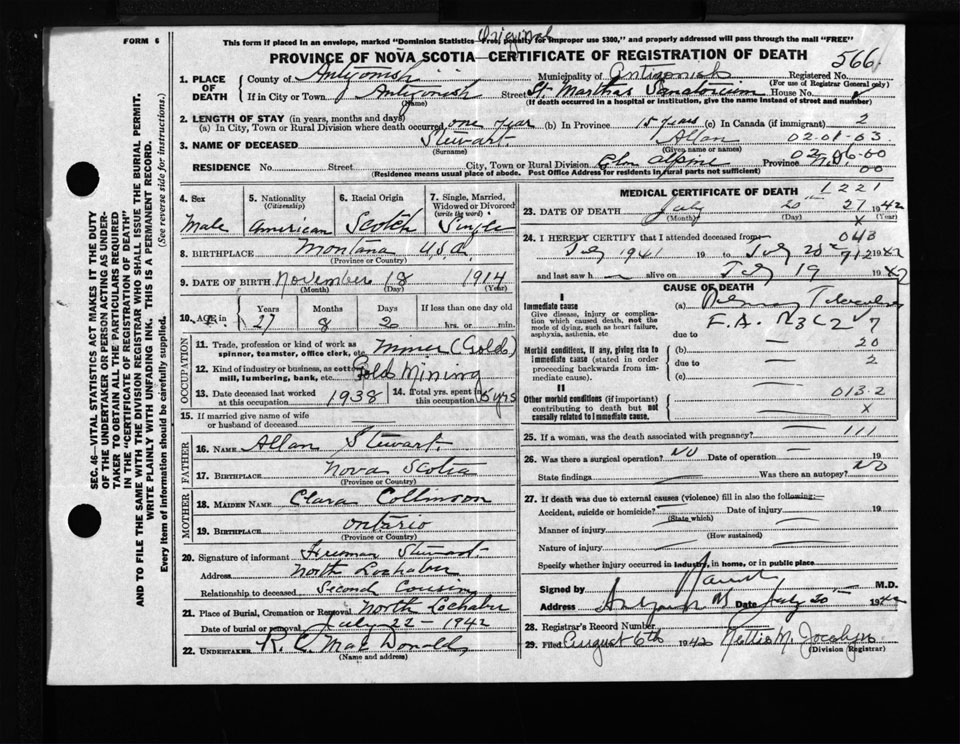 FORM 6
Original
This form if placed in an envelope, marked "Dominion Statistics—Free, penalty for improper use $300," and properly addressed will pass through the mail "FREE"
PROVINCE OF NOVA SCOTIA—CERTIFICATE OF REGISTRATION OF DEATH 566
SEC. 46—VITAL STATISTICS ACT MAKES IT THE DUTY
OF THE UNDERTAKER OR PERSON ACTING AS UNDER-
TAKER TO OBTAIN ALL THE PARTICULARS REQUIRED
IN THE "CERTIFICATE OF REGISTRATION OF DEATH"
AND TO FILE THE SAME WITH THE DIVISION REGISTRAR WHO SHALL ISSUE THE BURIAL PERMIT.
WRITE PLAINLY WITH UNFADING INK. THIS IS A PERMANENT RECORD.
Every item of information should be carefully supplied. (See reverse side for instructions.)
1. PLACE OF DEATH
County of Antigonish Municipality of Antigonish Registered No.
(For use of Registrar General only)
If in City or Town Antigonish Street St. Martha's Sanatorium House No.
(Name) (If death occurred in a hospital or institution, give the name instead of street and number)
2. LENGTH OF STAY (in years, months and days)
(a) In City, Town or Rural Division where death occurred one year (b) In Province 15 years (c) In Canada (if immigrant) 2
3. NAME OF DECEASED Stewart Allan 02-01-03
(Surname) (Given name or names)
RESIDENCE No. Street City, Town or Rural Division Glen Alpine Province N.S. 02 06-00
00
(Residence means usual place of abode. Post Office Address for residents in rural parts not sufficient)
4. Sex Male
5. Nationality (Citizenship) American
6. Racial Origin Scotch
7. Single, Married, Widowed or Divorced (write the word) Single
8. BIRTHPLACE Montana U.S.A.
(Province or Country)
9. DATE OF BIRTH November 18 1914
(Month) (Day) (Year)
10. Age in Years Months Days If less than one day old
27 8 20 hrs. or min.
OCCUPATION
11. Trade, profession or kind of work as spinner, teamster, office clerk, etc. Miner (Gold)
12. Kind of industry or business, as cotton mill, lumbering, bank, etc. Gold Mining
13. Date deceased last worked at this occupation 1938 14. Total yrs. spent in this occupation 6 yrs
15. If married give name of wife or husband of deceased
FATHER
16. NAME Allan Stewart
17. BIRTHPLACE Nova Scotia
(Province or Country)
MOTHER
18. MAIDEN NAME Clara
19. BIRTHPLACE Ontario
(Province or Country)
20. Signature of informant Freeman Stewart
Address North Lochaber
Relationship to deceased Second Cousin
21. Place of Burial, Cremation or Removal North Lochaber
Date of burial or removal July 22 - 1942
22. UNDERTAKER R. C. MacDonald
(Name and address)
MEDICAL CERTIFICATE OF DEATH 1221
23. DATE OF DEATH July 20th 27 1942
(Month) (Day) (Year)
X
24. I HEREBY CERTIFY that I attended deceased from 043
July 1941 19 to July 20th 912 1942
and last saw h alive on July 19 1942
CAUSE OF DEATH
I
Immediate cause (a) Pulmonary Tuberculosis
Give disease, injury or complication which caused death, not the mode of dying, such as heart failure, asphyxia, asthenia, etc
due to F.A. R3C2 7
Morbid conditions, if any, giving rise to immediate cause (stated in order proceeding backwards from immediate cause).
(b) — 20
due to — 2
(c) —
II
Other morbid conditions (if important) contributing to death but not causally related to immediate cause. 013-2
— X
25. If a woman, was the death associated with pregnancy? — 111
26. Was there a surgical operation? NO Date of operation — 19
State findings — Was there an autopsy? NO
27. If death was due to external causes (violence) fill in also the following:—
Accident, suicide or homicide? — Date of injury — 19
(State which)
Manner of injury —
(How sustained)
Nature of injury —
Specify whether injury occurred in industry, in home, or in public place
Signed by M.D.
Address Antigonish Date July 20th 1942
28. Registrar's Record Number
29. Filed August 6th 1942 Nettie M. Jocelyn
(Division Registrar)